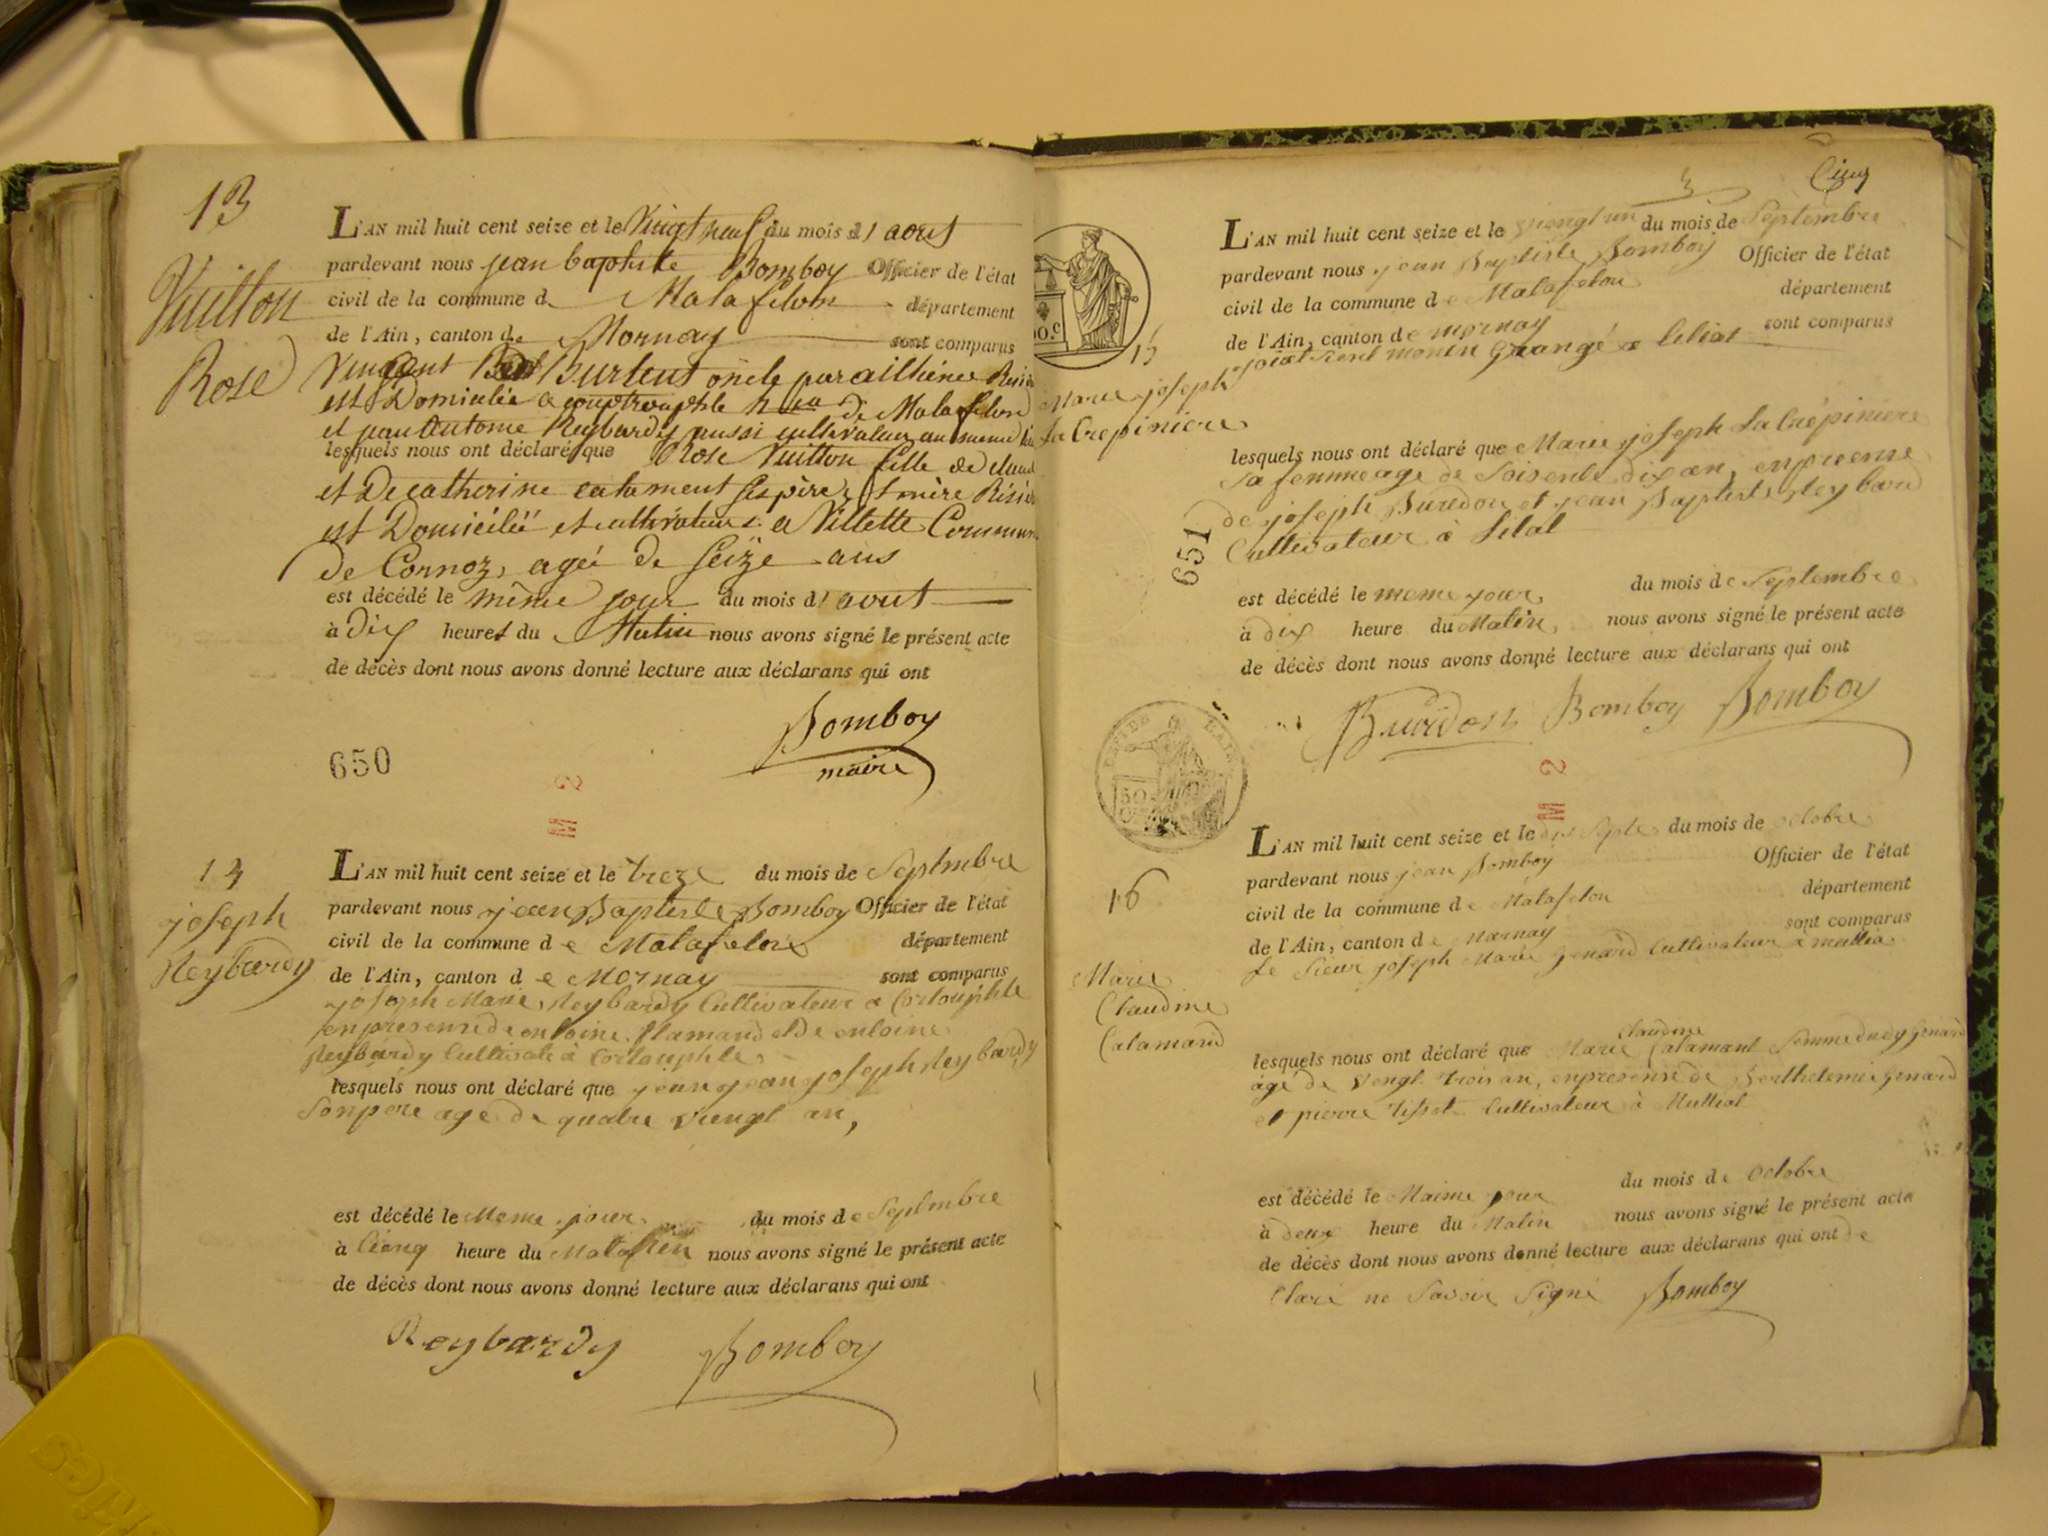 13
Vuitton
Rose
L'AN mil huit cent seize et le Vingt neuf du mois d'aout
pardevant nous jean baptiste Bomboy Officier de l'état
civil de la commune de Malafelon département
de l'Ain, canton de Mornay sont comparus
Vincent Burlent oncle par
est Domicilié a de Malafelon
et Antoine Reybardy aussi cultivateur au meme
lesquels nous ont déclaré que Rose Vuitton fille de
et De catherine ses père et mère
est Domiciliée et cultivateurs a Villette Commune
De Cornoz, agée de seize ans
est décédé le même jour du mois d'aout
à dix heures du Matin nous avons signé le présent acte
de décès dont nous avons donné lecture aux déclarans qui ont
Bomboy
maire
650
M 2
14
joseph
Reybardy
L'AN mil huit cent seize et le treze du mois de Septmbre
pardevant nous jean Baptiste Bomboy Officier de l'état
civil de la commune de Malafelon département
de l'Ain, canton de Mornay sont comparus
joseph Marie Reybardy Cultivateur a
en presense de ontoine flamand et de ontoine
Reybardy
lesquels nous ont déclaré que jean joseph Reybardy
son pere age de quatre viengt an,
est décédé le Meme jour du mois de Septmbre
à Cienq heure du nous avons signé le présent acte
de décès dont nous avons donné lecture aux déclarans qui ont
Reybardy Bomboy
Cinq
15
Marie joseph
La Crepiniere
L'AN mil huit cent seize et le viengt un du mois de Septembre
pardevant nous jean Baptiste Bomboy Officier de l'état
civil de la commune de Malafelon département
de l'Ain, canton de mornay sont comparus
lesquels nous ont déclaré que Marie joseph La Crépiniere
sa femme age de soisente dix an, en presense
de joseph Buredon et jean Baptiste Reybard
Cultivateur à
651
est décédé le meme jour du mois de Septembre
à dix heure du Matin nous avons signé le présent acte
de décès dont nous avons donné lecture aux déclarans qui ont
Buridon Bomboy Bomboy
50
M 2
16
Marie
Claudine
Calamand
L'AN mil huit cent seize et le dix septe du mois de octobre
pardevant nous jean Bomboy Officier de l'état
civil de la commune de Malafelon département
de l'Ain, canton de Mornay sont comparus
Le Sieur joseph Marie Genard Cultivateur a
claudine
lesquels nous ont déclaré que Marie Calamant femme Genard
age de viengt trois an, en presense de Berthelemie Genard
et pierre Tissot Cultivateur à
est décédé le Maime jour du mois de octobre
à deux heure du Matin nous avons signé le présent acte
de décès dont nous avons donné lecture aux déclarans qui ont de
Claré ne Savoir Signé Bomboy